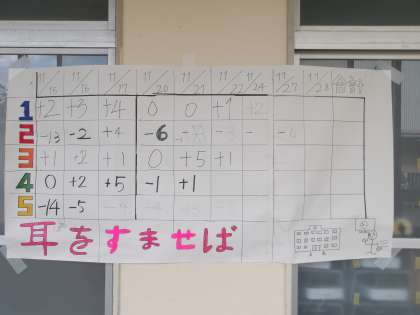 11/15 11/16 11/17 11/20 11/21 11/22 11/24 11/27 11/28 合計
1 +2 +3 +4 0 0 +1 +2
2 -13 -2 +4 -6
3 +1 +2 +1 0 +5 +1
4 0 +2 +5 -1 +1
5 -14 -5
耳をすませば